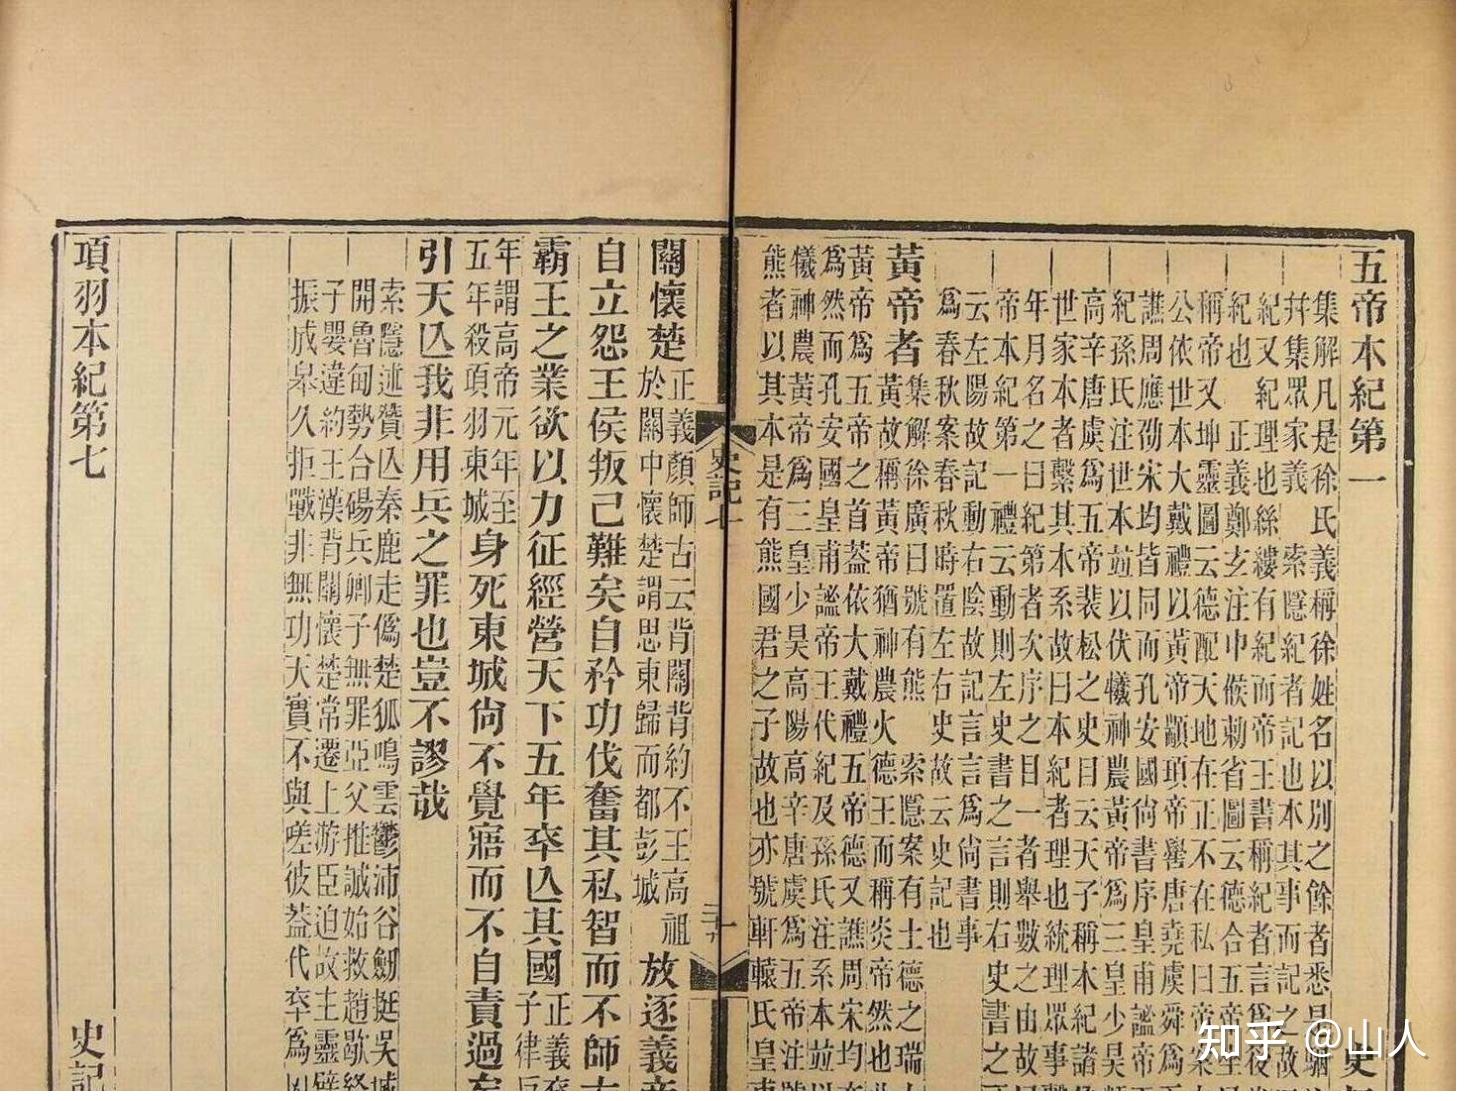 五帝本紀第一
史
集解凡是徐氏義稱徐姓名以別之餘者悉是駰
幷集眾家義 索隱紀者記也本其事而記之故
紀又紀理也絲縷有紀而帝王書稱紀者言爲後
紀也 正義鄭玄注中候勑省圖云德合五帝
稱帝又坤靈圖云德配天地在正不在私曰帝
公依世本大戴禮以黃帝顓項帝嚳唐堯虞舜爲
譙周應劭宋均皆同而孔安國尙書序皇甫謐帝王
紀孫氏注世本竝以伏犧神農黃帝爲三皇少昊
高辛唐虞爲五帝裴松之史目云天子稱本紀諸
世家本者繫其本系故曰本紀者理也統理眾事
年月名之曰紀第者次序之目一者舉數之由故曰
帝本紀第一禮云動則左史書之言則右史書之
云左陽故記動右陰故記言言爲尙書事
爲春秋案春秋時置左右史故云史記也
黃帝者集解徐廣曰號有熊 索隱案有土德之瑞
黃故稱黃帝猶神農火德王而稱炎帝然也
黃帝爲五帝之首葢依大戴禮五帝德又譙周宋均
爲然而孔安國皇甫謐帝王代紀及孫氏注系本竝以
犧神農黃帝爲三皇少昊高陽高辛唐虞爲五帝注
熊者以其本是有熊國君之子故也亦號軒轅氏皇
史記七
關懷楚正義顏師古云背關背約不王高祖
於關中懷楚謂思東歸而都彭城放逐義
自立怨王侯叛己難矣自矜功伐奮其私智而不師
霸王之業欲以力征經營天下五年卒亾其國正義
子律
年謂高帝元年至
五年殺項羽東城身死東城尙不覺寤而不自責過
引天亾我非用兵之罪也豈不謬哉
索隱述贊亾秦鹿走僞楚狐鳴雲鬱沛谷劒挺吳城
開魯甸勢合碭兵卿子無罪亞父推誠始救趙歇終
子嬰違約王漢背關懷楚常遷上游臣迫故主靈
振成皋久拒戰非無功天實不與嗟彼葢代卒爲
項羽本紀第七
史記
知乎 @山人